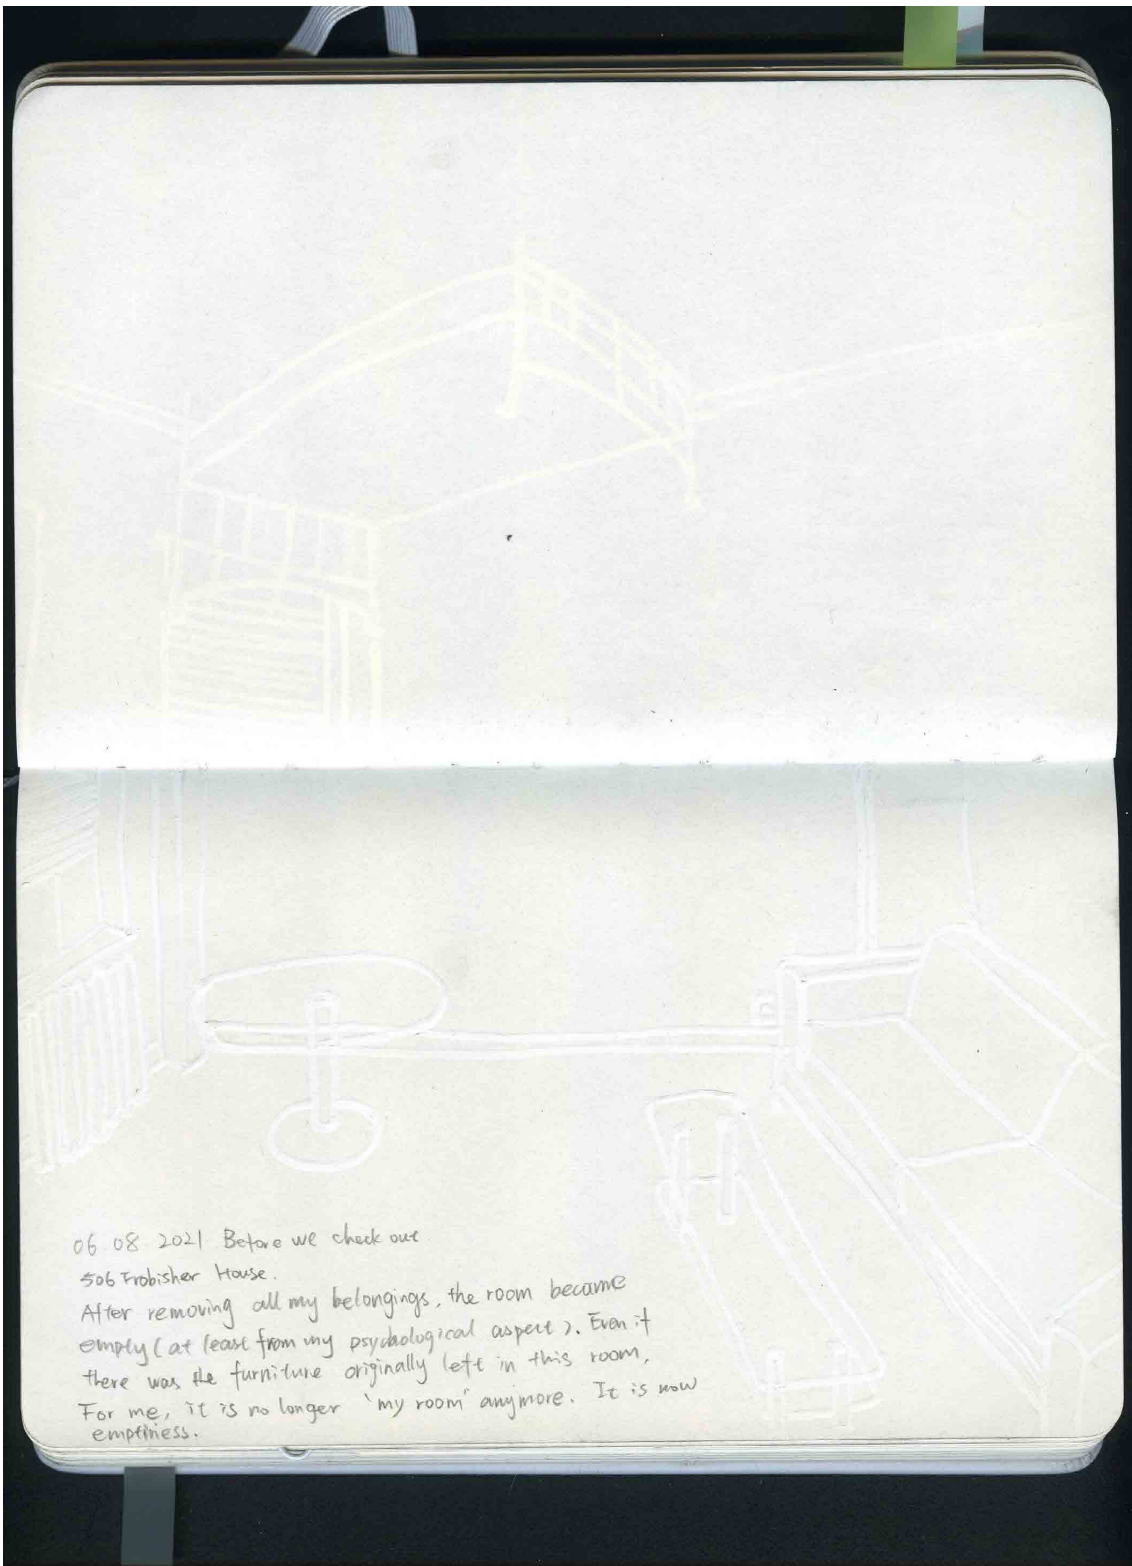 06 08 2021 Before we check out
506 Frobisher House.
After removing all my belongings, the room became
empty (at least from my psychological aspect). Even if
there was the furniture originally left in this room,
For me, it is no longer 'my room' anymore. It is now
emptiness.